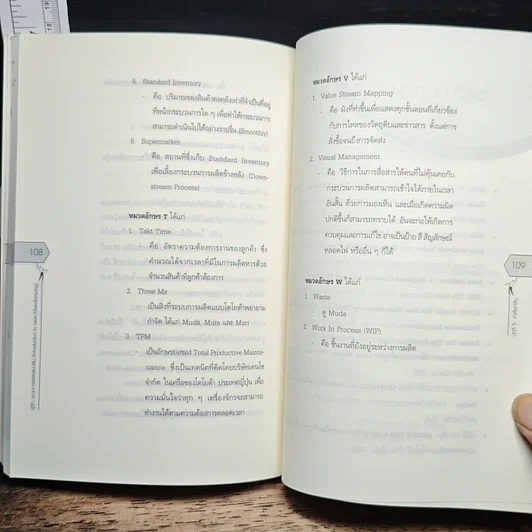 5. Standard Inventory
- คือ ปริมาณของสินค้าคงคลังเท่าที่จำเป็นที่อยู่
ที่หน้ากระบวนการใด ๆ เพื่อทำให้กระบวนการ
สามารถดำเนินไปได้อย่างราบรื่น (Smoothly)
6. Supermarket
- คือ สถานที่ซึ่งเก็บ Standard Inventory
เพื่อเลี้ยงกระบวนการผลิตข้างหลัง (Down-
stream Process)
หมวดอักษร T ได้แก่
1. Takt Time
- คือ อัตราความต้องการงานของลูกค้า ซึ่ง
คำนวณได้จากเวลาที่มีในการผลิตหารด้วย
จำนวนสินค้าที่ลูกค้าต้องการ
2. Three Ms
- เป็นสิ่งที่ระบบการผลิตแบบโตโยต้าพยายาม
กำจัด ได้แก่ Muda, Mura และ Muri
3. TPM
- เป็นอักษรย่อของ Total Productive Mainte-
nance ซึ่งเป็นเทคนิคที่คิดโดยบริษัทเดนโซ่
จำกัด ในเครือของโตโยต้า ประเทศญี่ปุ่น เพื่อ
ความมั่นใจว่าทุก ๆ เครื่องจักรจะสามารถ
ทำงานได้ตามความต้องการตลอดเวลา
108
(Introduction to Lean Manufacturing)
หมวดอักษร V ได้แก่
1. Value Stream Mapping
- คือ ผังที่ทำขึ้นเพื่อแสดงทุกขั้นตอนที่เกี่ยวข้อง
กับการไหลของวัตถุดิบและข่าวสาร ตั้งแต่การ
สั่งซื้อจนถึงการจัดส่ง
2. Visual Management
- คือ วิธีการในการสื่อสารให้คนที่ไม่คุ้นเคยกับ
กระบวนการผลิตสามารถเข้าใจได้ภายในเวลา
อันสั้น ด้วยการมองเห็น และเมื่อเกิดความผิด
ปกติขึ้นก็สามารถทราบได้ อันจะก่อให้เกิดการ
ควบคุมและการแก้ไข อาจเป็นป้าย สี สัญลักษณ์
หลอดไฟ หรืออื่น ๆ ก็ได้
หมวดอักษร W ได้แก่
1. Waste
- ดู Muda
2. Work In Process (WIP)
- คือ ชิ้นงานที่ยังอยู่ระหว่างการผลิต
109